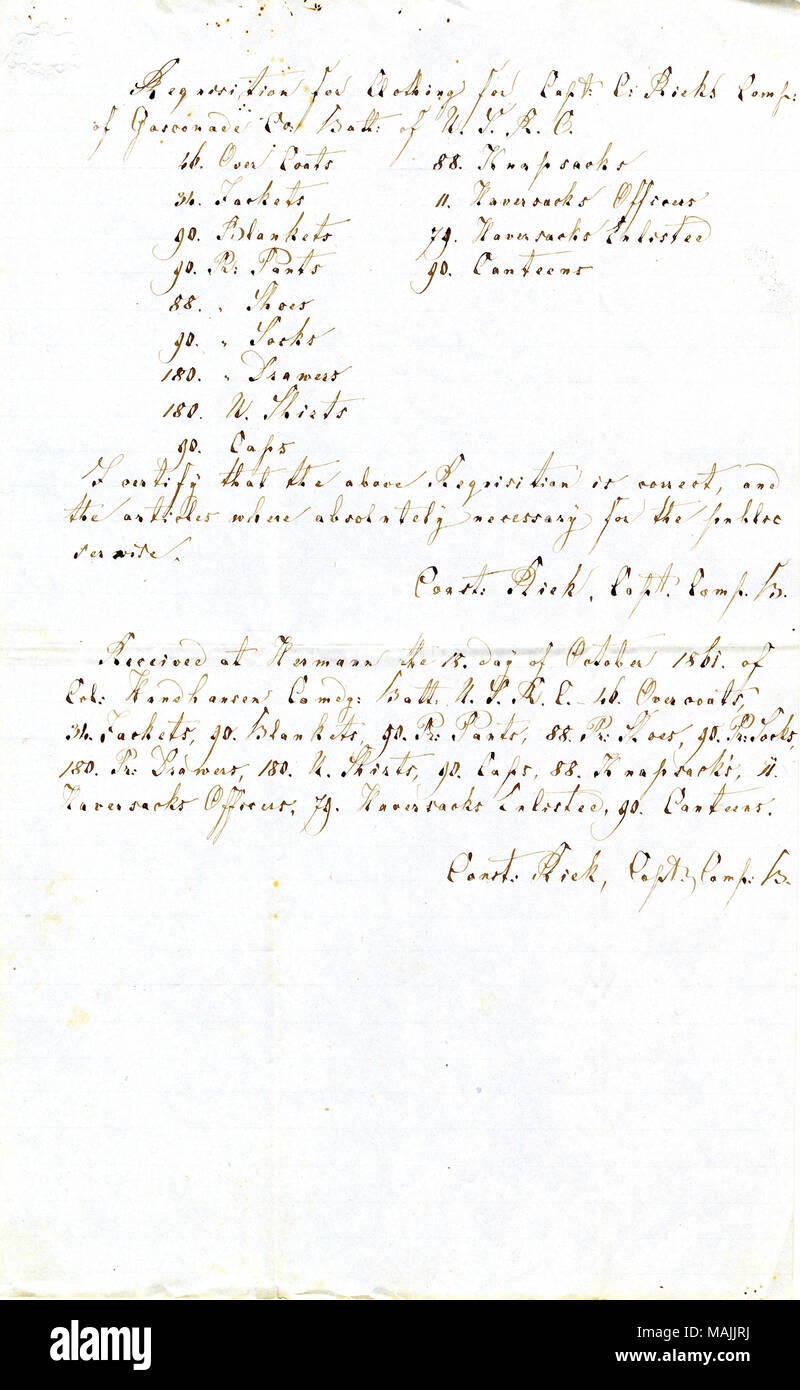 Requisition for Clothing for Capt: C: Rieks Comp:
of Gasconade Co: Batt: of U. S. R. C.
46. Over Coats 88. Knapsacks
34. Jackets 11. Haversacks Officers
90. Blankets 79. Haversacks Enlisted
90. Pr: Pants 90. Canteens
88. " Shoes
90. " Socks
180. " Drawers
180. U. Shirts
90. Caps
I certify that the above Requisition is correct, and
the articles where absolutely necessary for the public
servise.
Const: Riek, Capt. Comp. B.
Received at Hermann the 18. day of October 1861. of
Col: Hundhausen Comdg: Batt: U. S. R. C. 46. Overcoats,
34. Jackets, 90. Blankets, 90. Pr: Pants, 88. Pr: Shoes, 90. Pr: Socks,
180. Pr: Drawers, 180. U. Shirts, 90. Caps, 88. Knapsacks, 11.
Haversacks Officers, 79. Haversacks Enlisted, 90. Canteens.
Const: Riek, Capt: Comp: B.
a
alamy
Image ID: MAJJRJ
www.alamy.com